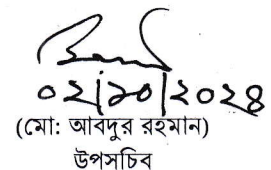 ০২|১০|২০২৪
(মো: আবদুর রহমান)
উপসচিব